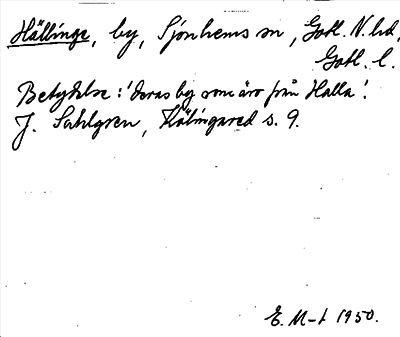 Hällinge, by, Sjonhems sn, Gotl. N. hd,
Gotl. l.
Betydelse: 'deras by som äro från Halla'.
J. Sahlgren, Hälingared s. 9.
E. M-t 1950.